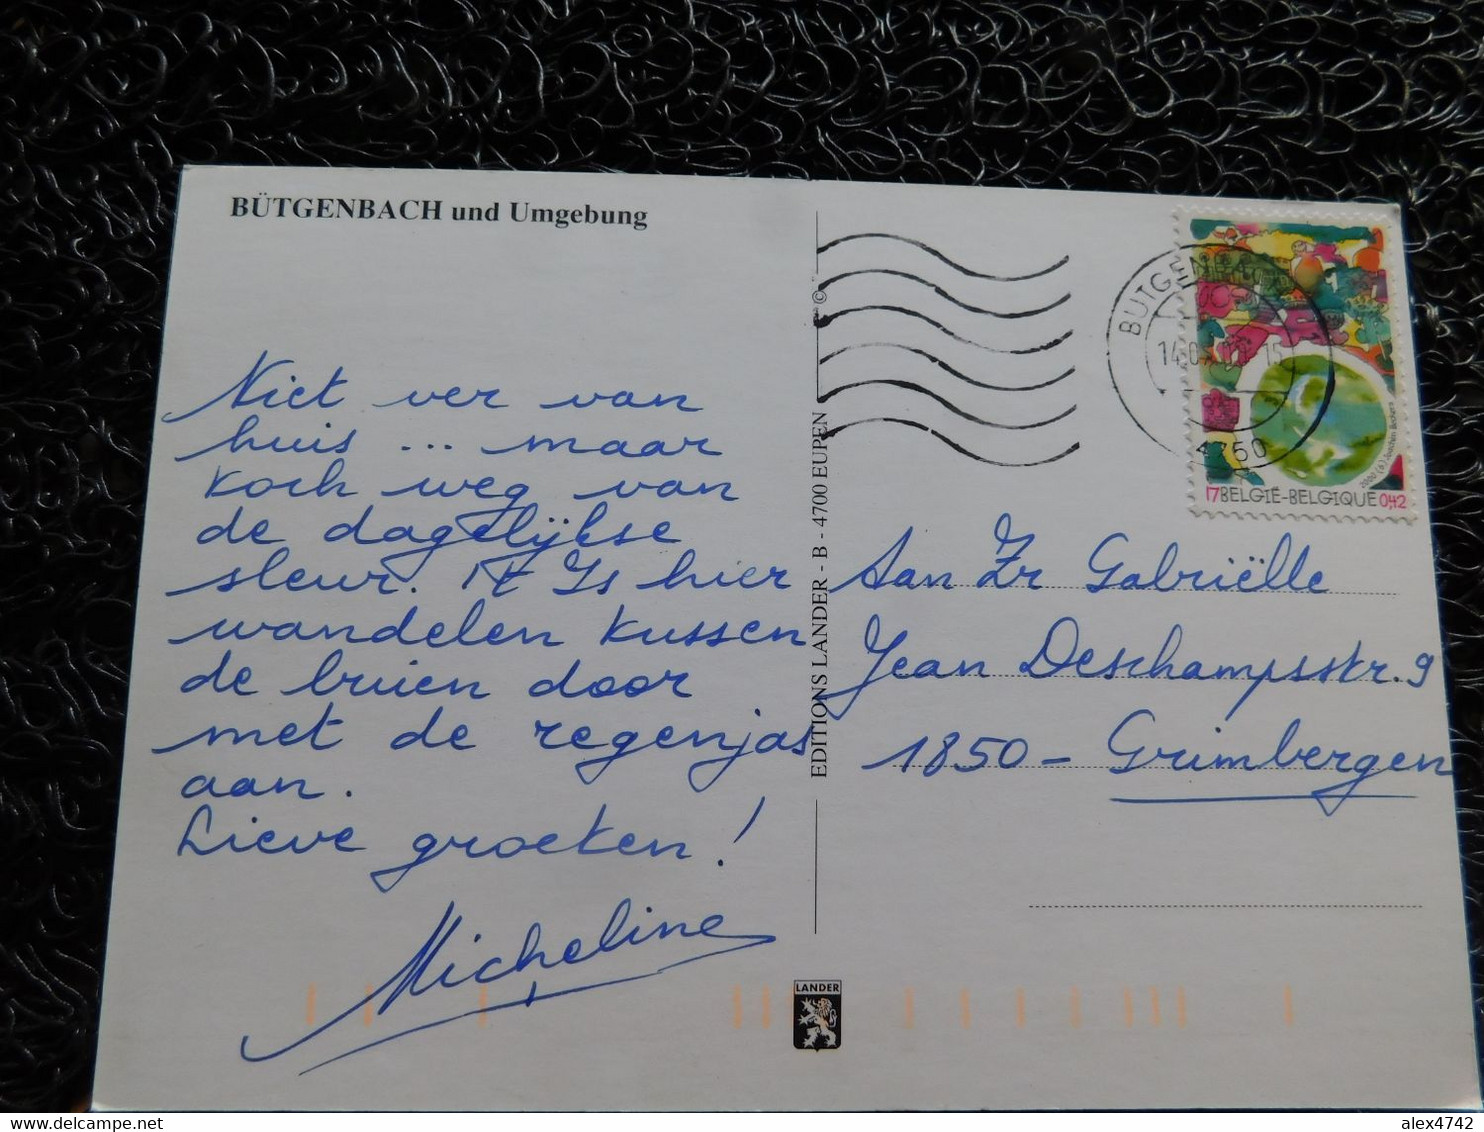 BÜTGENBACH und Umgebung
Niet ver van
huis ... maar
koch weg van
de dagelijkse
sleur. 't Is hier
wandelen kussen
de buien door
met de regenjas
aan.
Lieve groeten!
Micheline
EDITIONS LANDER - B - 4700 EUPEN ©
BÜTGENBACH
4750
2000 (6) Jochen Beckers
17 BELGIË-BELGIQUE 0,42
Aan Zr Gabriëlle
Jean Deschampsstr. 9
1850 - Grimbergen
LANDER
alex4742